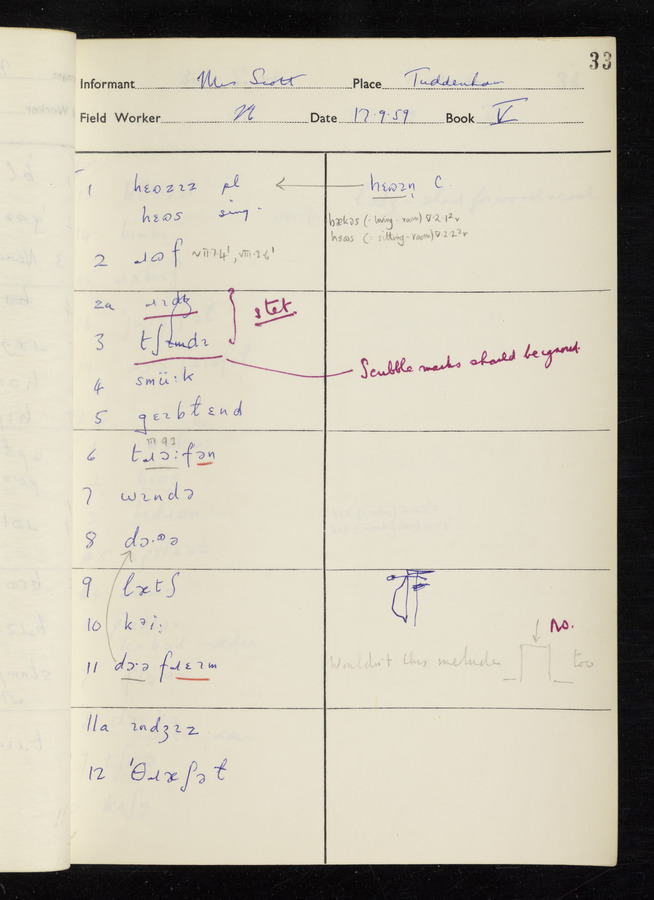 33
Informant Mrs Scott Place Tuddenham
Field Worker N Date 17.9.59 Book V
1 hɛʊzɪz pl ← hɛʊzn̩ C.
hɛʊs sing.
bækəs (= living-room) V.2.1²v
hɛʊs (= sitting-room) V.2.2²v
2 ɹʊf ~VII.7.4¹, VIII.3.6¹
2a ɹɪdʒ
stet
3 tʃɪmdɪ
Scribble marks should be ignored.
4 smüːk
5 gɛɪbtɛnd
III.9.3
6 tɹɔːfən
7 wɪndə
8 dɔ·ʊə
9 lætʃ
10 kəiː
11 dɔ·ə fɹɛɪm
Wouldn't this include too
no.
11a ɪndʒɪz
12 'θɹæʃət